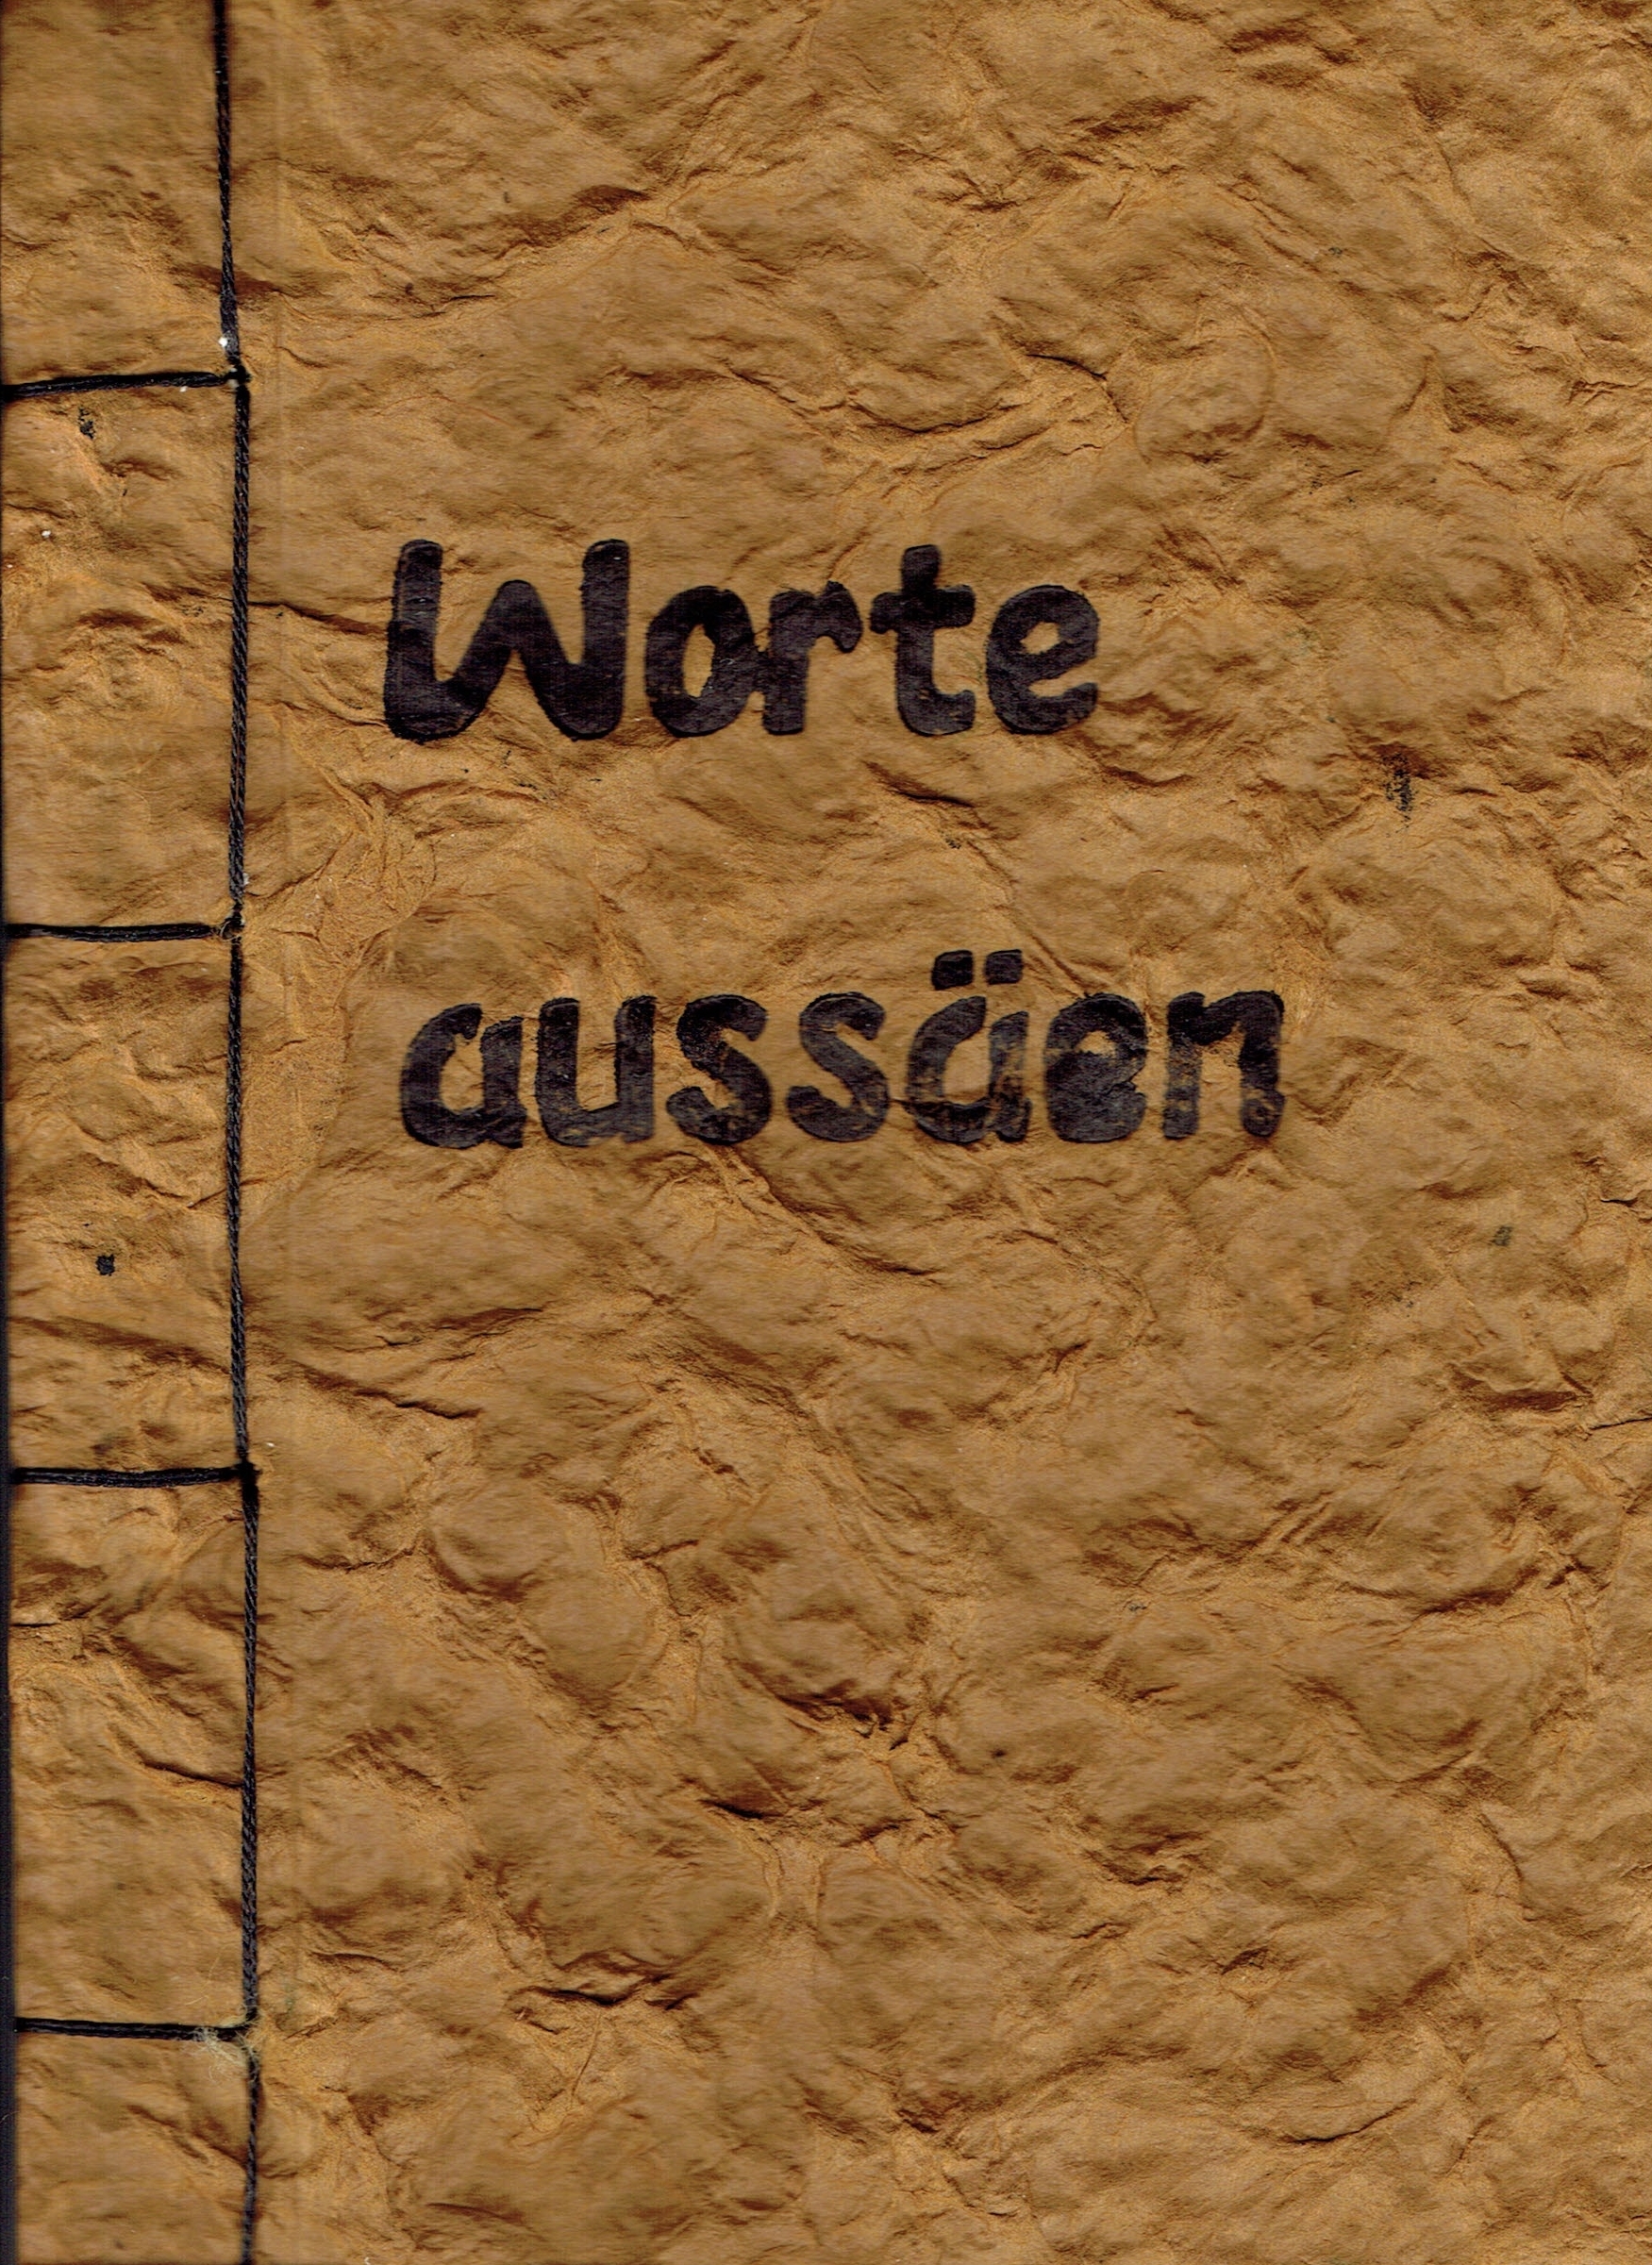 Worte
aussäen